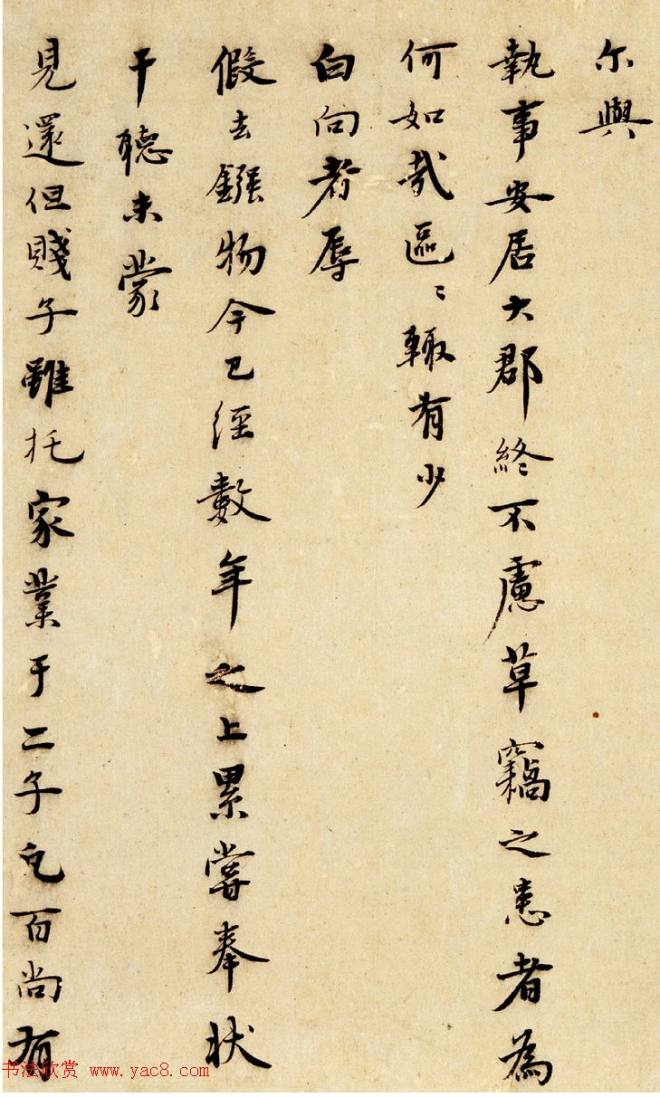 尔與
執事安居大郡終不慮草竊之患者為
何如哉區〻輙有少
白向者辱
假去鏹物今已經數年之上累嘗奉狀
干聽未蒙
見還但賤子雖托家業于二子凢百尚有
书法欣赏 www.yac8.com